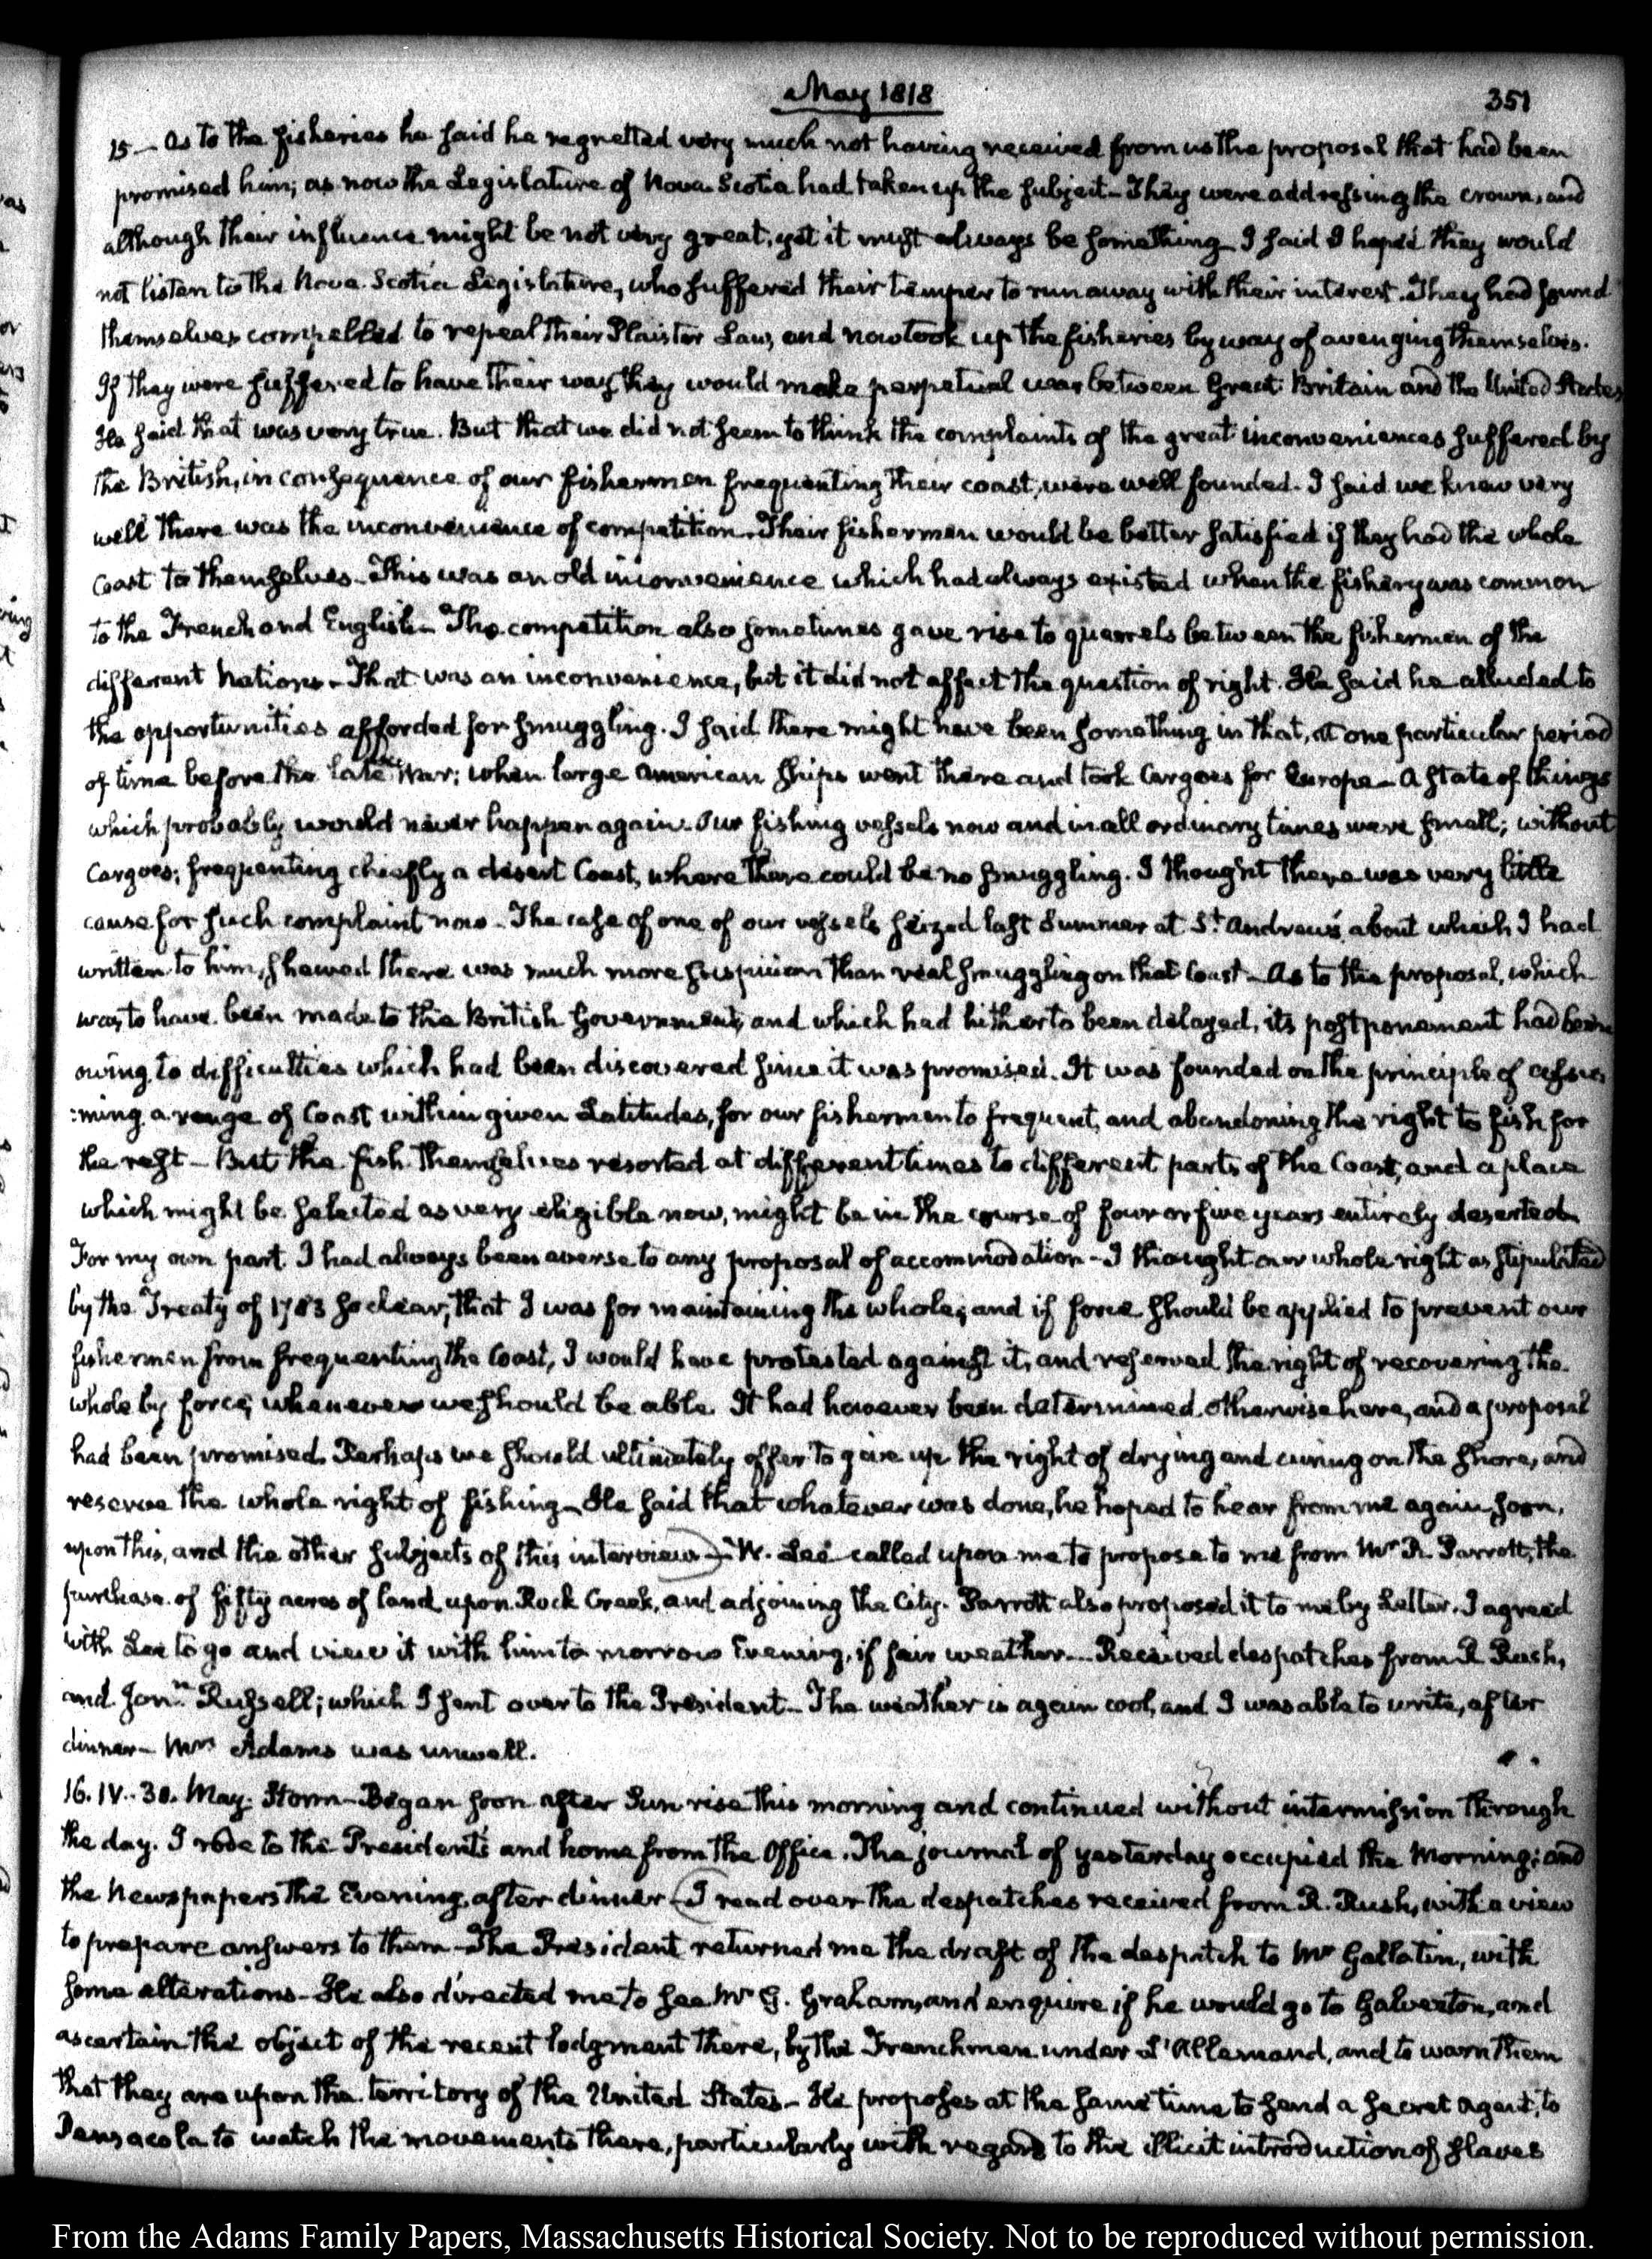 May 1818
351
15 — As to the fisheries he said he regretted very much not having received from us the proposal that had been
promised him; as now the Legislature of Nova Scotia had taken up the subject — They were addressing the crown, and
although their influence might be not very great, yet it must always be something — I said I hoped they would
not listen to the Nova Scotia Legislature, who suffered their temper to run away with their interest. They had found
themselves compelled to repeal their Plaister Law, and now took up the fisheries by way of avenging themselves.
If they were suffered to have their way they would make perpetual war between Great Britain and the United States,
He said that was very true. But that we did not seem to think the complaints of the great inconveniences suffered by
the British, in consequence of our fishermen frequenting their coast, were well founded. I said we knew very
well there was the inconvenience of competition. Their fishermen would be better satisfied if they had the whole
Coast to themselves — This was an old inconvenience which had always existed when the fishery was common
to the French and English — The competition also sometimes gave rise to quarrels between the fishermen of the
different Nations — That was an inconvenience, but it did not affect the question of right. He said he alluded to
the opportunities afforded for smuggling. I said there might have been something in that, at one particular period
of time before the late War; when large American ships went there and took Cargoes for Europe — A state of things
which probably would never happen again. Our fishing vessels now and in all ordinary times were small; without
Cargoes; frequenting chiefly a desert Coast, where there could be no smuggling. I thought there was very little
cause for such complaint now — The case of one of our vessels seized last Summer at St. Andrew's about which I had
written to him, shewed there was much more suspicion than real smuggling on that Coast — As to the proposal, which
was to have been made to the British Government, and which had hitherto been delayed, its postponement had been
owing to difficulties which had been discovered since it was promised. It was founded on the principle of assu-
:ming a range of Coast within given Latitudes, for our fishermen to frequent, and abandoning the right to fish for
the rest — But the fish themselves resorted at different times to different parts of the Coast, and a place
which might be selected as very eligible now, might be in the course of four or five years entirely deserted
For my own part I had always been averse to any proposal of accommodation — I thought our whole right as stipulated
by the Treaty of 1783 so clear, that I was for maintaining the whole; and if force should be applied to prevent our
fishermen from frequenting the Coast, I would have protested against it, and reserved the right of recovering the
whole by force, whenever we should be able. It had however been determined otherwise here, and a proposal
had been promised. Perhaps we should ultimately offer to give up the right of drying and curing on the shore, and
reserve the whole right of fishing — He said that whatever was done, he hoped to hear from me again soon,
upon this, and the other subjects of this interview — W. Lee called upon me to propose to me from Mr. R. Parrott, the
purchase of fifty acres of land upon Rock Creek, and adjoining the City. Parrott also proposed it to me by Letter. I agreed
with Lee to go and view it with him to morrow Evening, if fair weather — Received despatches from R Rush,
and Jonn. Russell; which I sent over to the President — The weather is again cool, and I was able to write, after
dinner — Mrs Adams was unwell.
16. IV. 30. May. Storm — Began soon after Sun rise this morning and continued without intermission through
the day. I rode to the President's and home from the Office. The journal of yesterday occupied the Morning; and
the Newspapers the Evening after dinner — I read over the despatches received from R. Rush, with a view
to prepare answers to them — The President returned me the draft of the despatch to Mr Gallatin, with
some alterations — He also directed me to see Mr G. Graham, and enquire if he would go to Galveston, and
ascertain the object of the recent lodgment there, by the Frenchmen under L'Allemand, and to warn them
that they are upon the territory of the United States — He proposes at the same time to send a secret agent, to
Pensacola to watch the movements there, particularly with regard to the illicit introduction of slaves
From the Adams Family Papers, Massachusetts Historical Society. Not to be reproduced without permission.